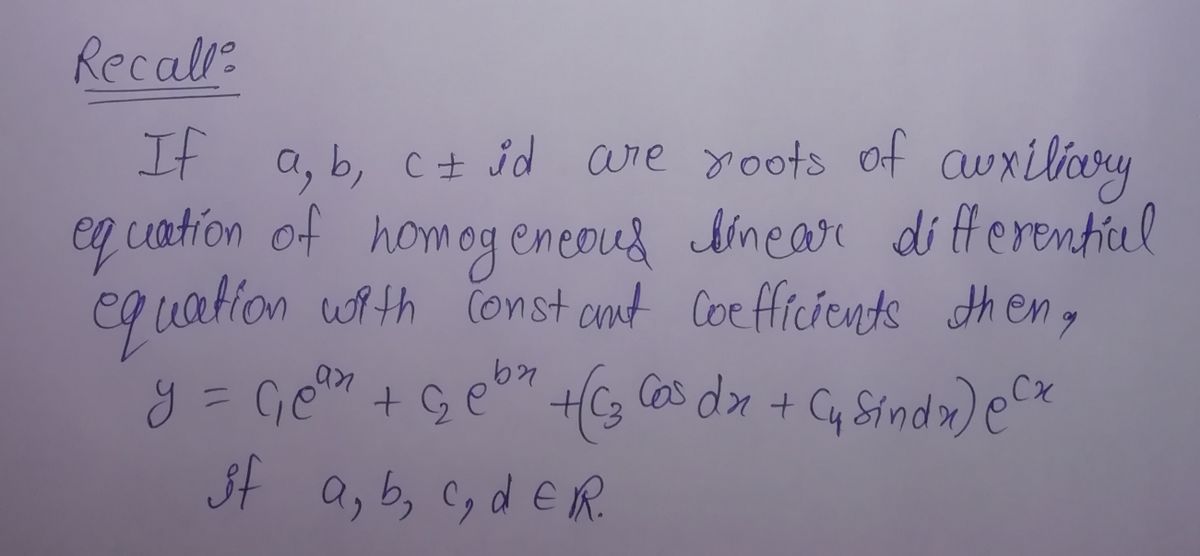 Recall:
If a, b, c ± id are roots of auxiliary
equation of homogeneous linear differential
equation with constant coefficients then,
y = C₁e^{ax} + C₂e^{bx} + (C₃ Cos dx + C₄ Sin dx) e^{cx}
if a, b, c, d ∈ ℝ.